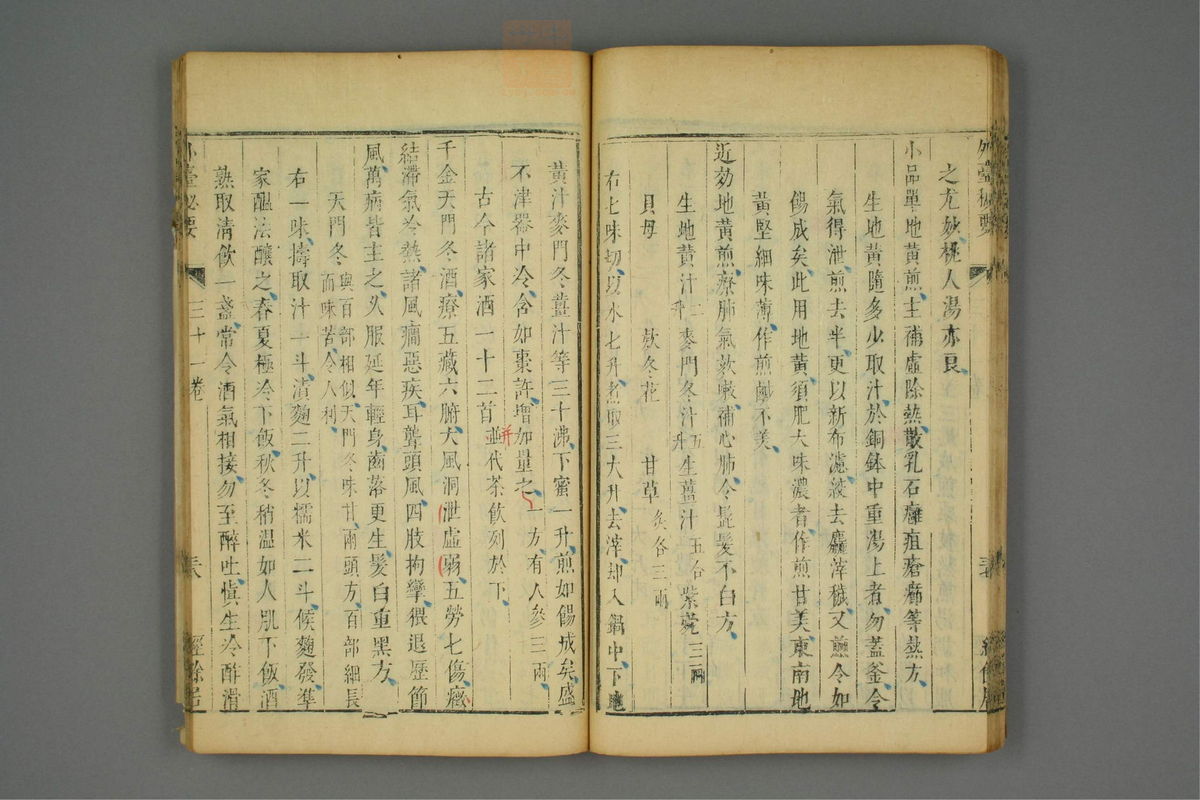 外臺秘要
之尤妙桃人湯亦良
小品單地黃煎主補虛除熱散乳石癰疽瘡癤等熱方
生地黃隨多少取汁於銅鉢中重湯上煮勿蓋釜令
氣得泄煎去半更以新布濾絞去麤滓穢又煎令如
餳成矣此用地黃須肥大味濃者作煎甘美東南地
黃堅細味薄作煎鹹不美
近効地黃煎療肺氣欬嗽補心肺令髭髮不白方
生地黃汁二升 麥門冬汁五升 生薑汁五合 紫菀三兩
貝母 欵冬花 甘草炙各三兩
右七味切以水七升煮取三大升去滓却入鍋中下地
黃汁麥門冬薑汁等三十沸下蜜一升煎如餳成矣盛
不津器中冷含如棗許增加量之一方有人參三兩
古今諸家酒一十二首並代茶飲刻於下
千金天門冬酒療五藏六腑大風洞泄虛弱五勞七傷癥
結滯氣冷熱諸風癎惡疾耳聾頭風四肢拘攣猥退歷節
風萬病皆主之久服延年輕身齒落更生髮白重黑方
天門冬與百部相似天門冬味甘兩頭方百部細長
而味苦令人利
右一味擣取汁一斗漬麴二升以糯米二斗候麴發準
家醞法釀之春夏極冷下飯秋冬稍温如人肌下飯酒
熟取清飲一盞常令酒氣相接勿至醉吐慎生冷酢滑
外臺秘要 三十一卷 經餘居